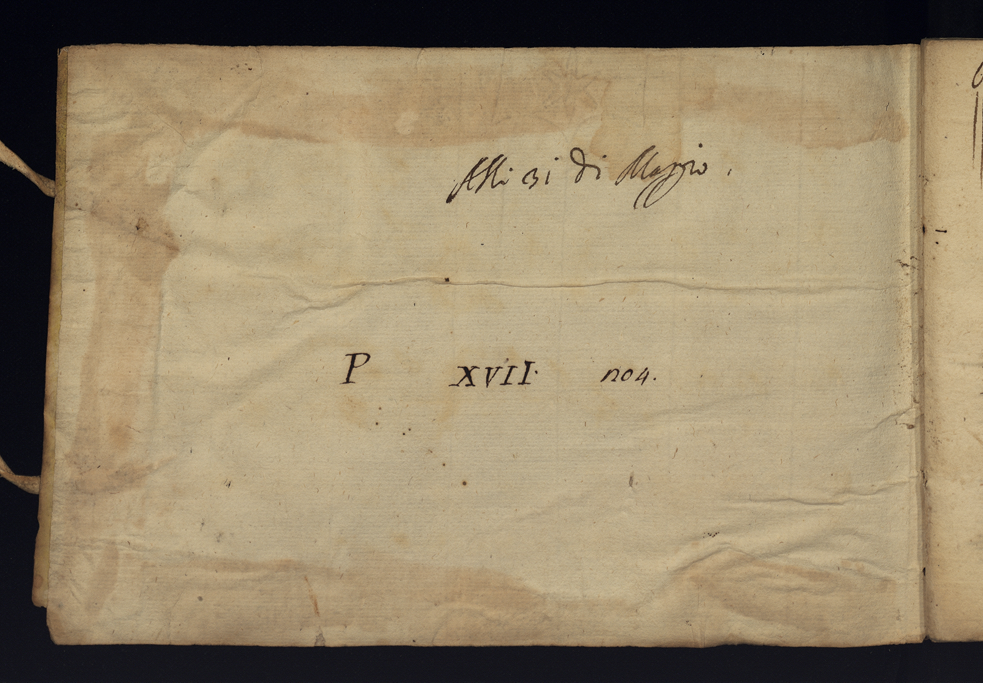 Alli 31 di Maggio.
P XVII. no4.